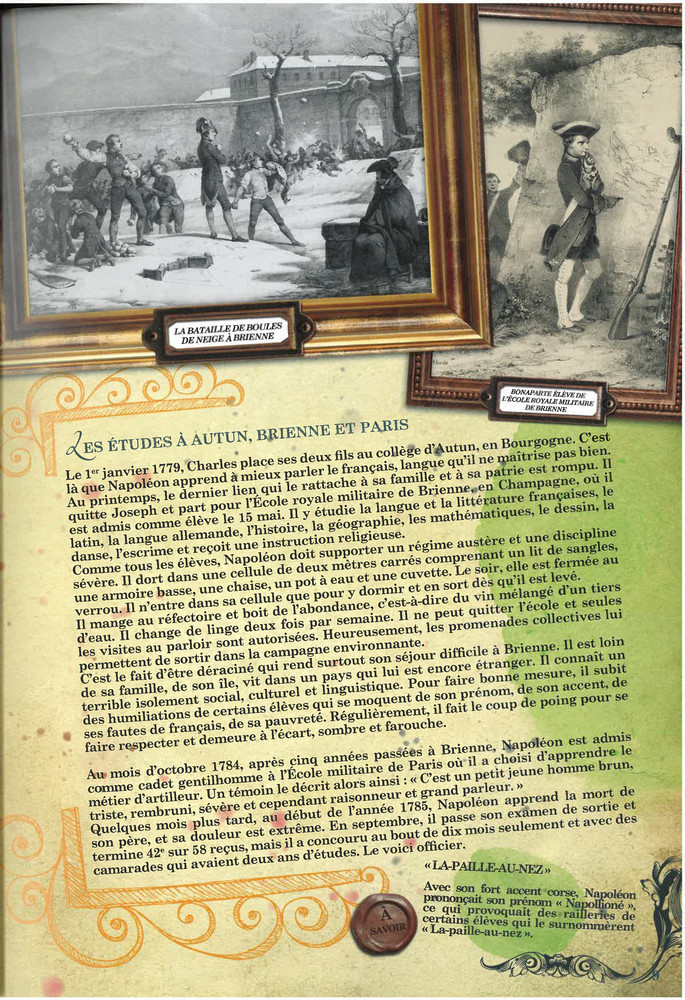 LA BATAILLE DE BOULES
DE NEIGE À BRIENNE
BONAPARTE ÉLÈVE DE
L'ÉCOLE ROYALE MILITAIRE
DE BRIENNE
LES ÉTUDES À AUTUN, BRIENNE ET PARIS
Le 1er janvier 1779, Charles place ses deux fils au collège d'Autun, en Bourgogne. C'est
là que Napoléon apprend à mieux parler le français, langue qu'il ne maîtrise pas bien.
Au printemps, le dernier lien qui le rattache à sa famille et à sa patrie est rompu. Il
quitte Joseph et part pour l'École royale militaire de Brienne, en Champagne, où il
est admis comme élève le 15 mai. Il y étudie la langue et la littérature françaises, le
latin, la langue allemande, l'histoire, la géographie, les mathématiques, le dessin, la
danse, l'escrime et reçoit une instruction religieuse.
Comme tous les élèves, Napoléon doit supporter un régime austère et une discipline
sévère. Il dort dans une cellule de deux mètres carrés comprenant un lit de sangles,
une armoire basse, une chaise, un pot à eau et une cuvette. Le soir, elle est fermée au
verrou. Il n'entre dans sa cellule que pour y dormir et en sort dès qu'il est levé.
Il mange au réfectoire et boit de l'abondance, c'est-à-dire du vin mélangé d'un tiers
d'eau. Il change de linge deux fois par semaine. Il ne peut quitter l'école et seules
les visites au parloir sont autorisées. Heureusement, les promenades collectives lui
permettent de sortir dans la campagne environnante.
C'est le fait d'être déraciné qui rend surtout son séjour difficile à Brienne. Il est loin
de sa famille, de son île, vit dans un pays qui lui est encore étranger. Il connaît un
terrible isolement social, culturel et linguistique. Pour faire bonne mesure, il subit
des humiliations de certains élèves qui se moquent de son prénom, de son accent, de
ses fautes de français, de sa pauvreté. Régulièrement, il fait le coup de poing pour se
faire respecter et demeure à l'écart, sombre et farouche.
Au mois d'octobre 1784, après cinq années passées à Brienne, Napoléon est admis
comme cadet gentilhomme à l'École militaire de Paris où il a choisi d'apprendre le
métier d'artilleur. Un témoin le décrit alors ainsi : « C'est un petit jeune homme brun,
triste, rembruni, sévère et cependant raisonneur et grand parleur. »
Quelques mois plus tard, au début de l'année 1785, Napoléon apprend la mort de
son père, et sa douleur est extrême. En septembre, il passe son examen de sortie et
termine 42e sur 58 reçus, mais il a concouru au bout de dix mois seulement et avec des
camarades qui avaient deux ans d'études. Le voici officier.
À
SAVOIR
« LA-PAILLE-AU-NEZ »
Avec son fort accent corse, Napoléon
prononçait son prénom « Napollioné »,
ce qui provoquait des railleries de
certains élèves qui le surnommèrent
« La-paille-au-nez ».